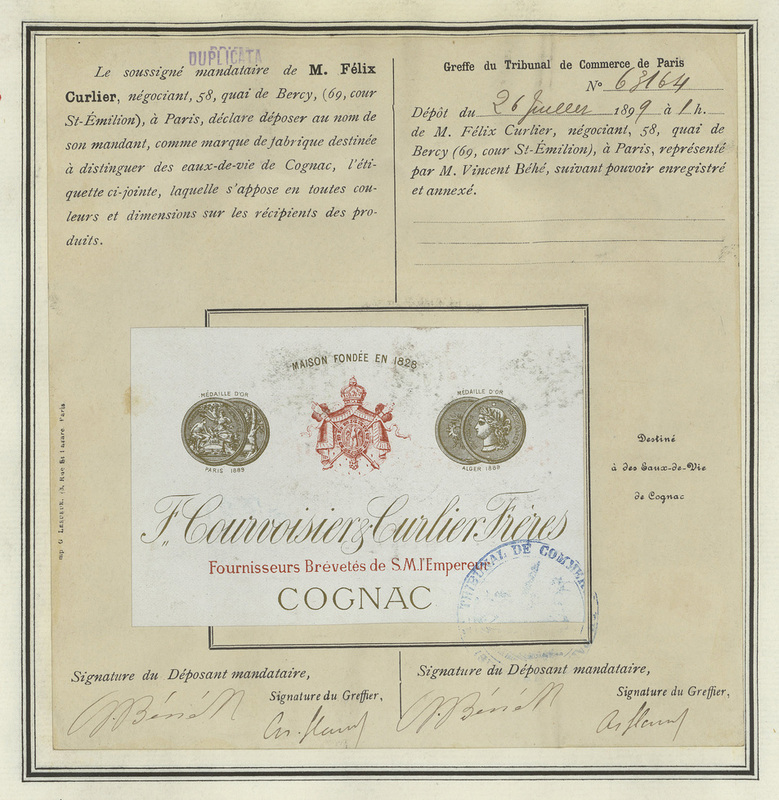 DUPLICATA
Le soussigné mandataire de M. Félix
Curlier, négociant, 58, quai de Bercy, (69, cour
St-Émilion), à Paris, déclare déposer au nom de
son mandant, comme marque de fabrique destinée
à distinguer des eaux-de-vie de Cognac, l'éti-
quette ci-jointe, laquelle s'appose en toutes cou-
leurs et dimensions sur les récipients des pro-
duits.
Greffe du Tribunal de Commerce de Paris
N° 63164
Dépôt du 26 Juillet 1899 à 1 h.
de M. Félix Curlier, négociant, 58, quai de
Bercy (69, cour St-Émilion), à Paris, représenté
par M. Vincent Béhé, suivant pouvoir enregistré
et annexé.
MAISON FONDÉE EN 1828
MÉDAILLE D'OR
PARIS 1889
MÉDAILLE D'OR
ALGER 1889
F. Courvoisier & Curlier Frères
Fournisseurs Brévetés de S.M. l'Empereur
COGNAC
TRIBUNAL DE COMMER
Destiné
à des Eaux-de-Vie
de Cognac
Paris
Signature du Déposant mandataire,
Signature du Greffier,
Signature du Déposant mandataire,
Signature du Greffier,